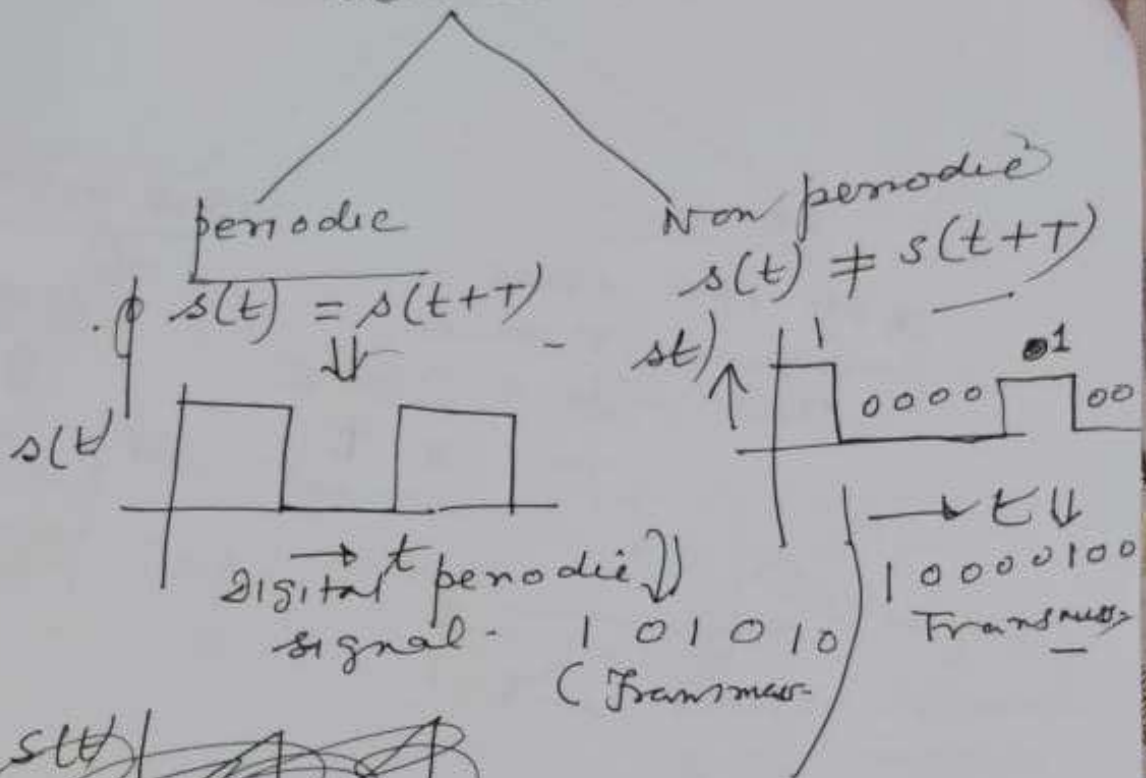 periodic
s(t) = s(t+T)
⇓
s(t)
→ t
Digital periodic ⇓
signal - 1 0 1 0 1 0
Non periodic
s(t) ≠ s(t+T)
st) ↑
1 0 0 0 0 1 0 0
→ t ⇓
1 0 0 0 0 1 0 0
s(t)